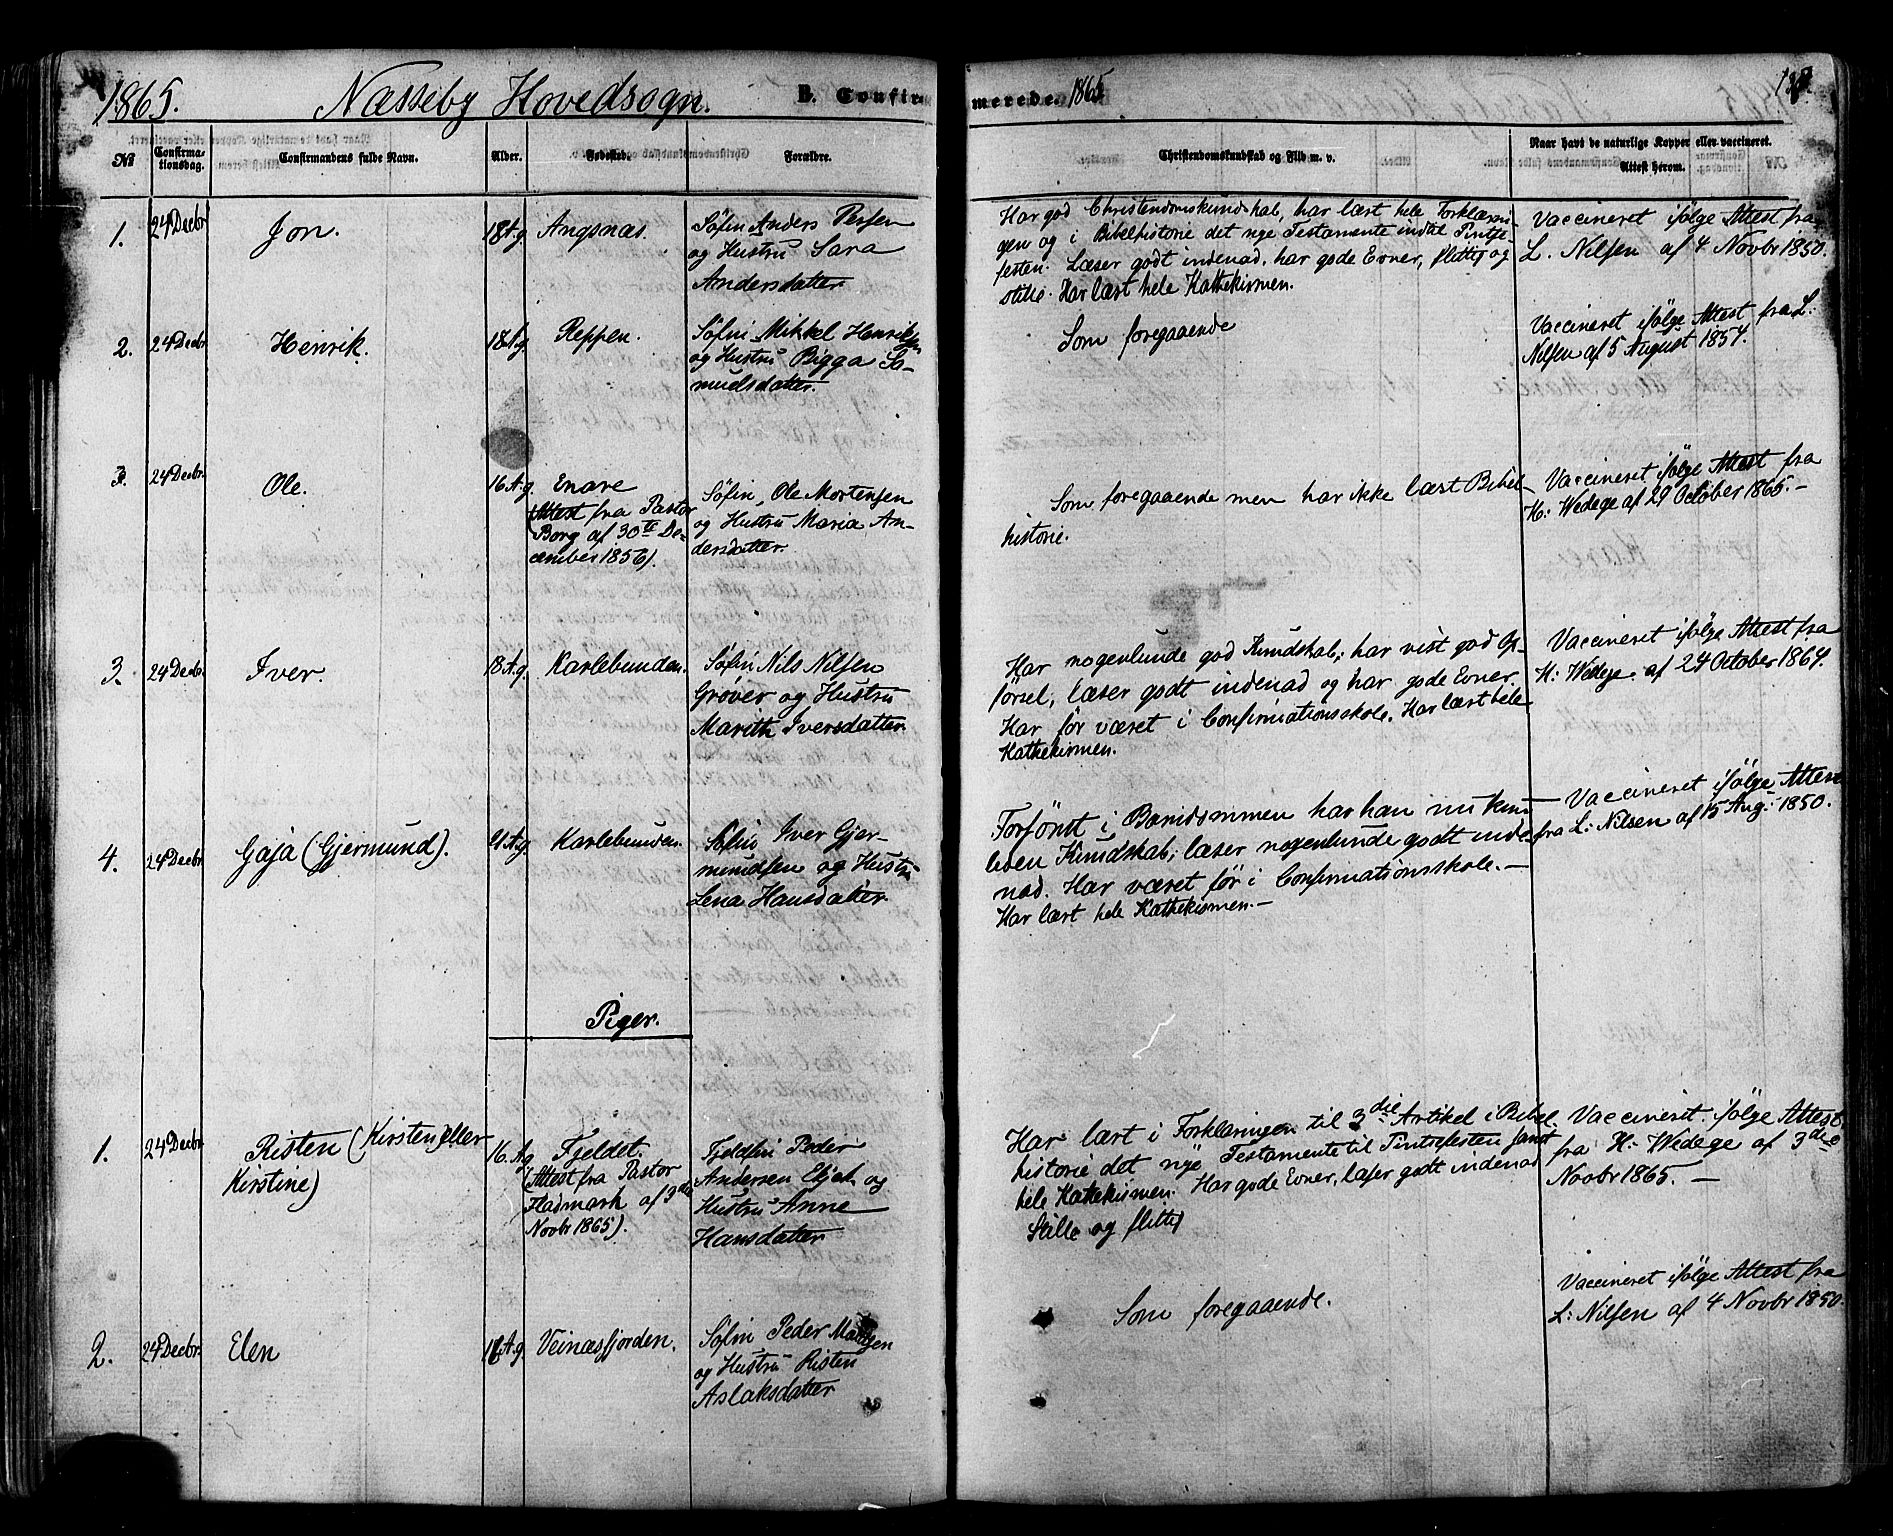 1865.
Næsseby Hovedsogn.
B. Confir
merede. 1865
No
Confirma-
tionsdag.
Confirmandens fulde Navn.
Alder.
Fødested.
Forældre.
Christendomskundskab og Flid m. v.
Naar havt de naturlige Kopper eller vaccineret.
Attest herom.
1.
24 Decbr
Jon.
18 A.g.
Angsnæs.
Søfin Anders Persen
og Hustru Sara
Andersdatter
Har god Christendomskundskab, har læst hele Forklarin
gen og i Bibelhistorie det nye Testamente indtil Pintse-
festen. Læser godt indenad, har gode Evner, flittig og
stille. Har læst hele Kathekismen.
Vaccineret ifølge Attest fra
L. Nilsen af 4 Novbr 1850.
2.
24 Decbr
Henrik.
18 A.g.
Reppen.
Søfin Mikkel Henriksen
og Hustru Bigga Sa-
muelsdatter.
Som foregaaende
Vaccineret ifølge Attest fra L:
Nilsen af 5 August 1857.
24 Decbr.
Ole.
16 A.g.
Enare
(Attest fra Pastor
Borg af 30te De-
cember 1856).
Søfin Ole Mortensen
og Hustru Maria An-
dersdatter.
Som foregaaende men har ikke læst Bibel-
historie.
Vaccineret ifølge Attest fra
H: Wedege af 29 October 1865.-
3.
24 Decbr.
Iver.
18 A.g.
Karlebunden.
Søfin Nils Nilsen
Grøver og Hustru
Marith Iversdatter.
Har nogenlunde god Kundskab, har vist god Op-
førsel, læser godt indenad og har gode Evner.
Har før været i Confirmationsskole. Har læst hele
Kathekismen.
Vaccineret ifølge Attest fra
H: Wedege. af 24 October 1864.
4.
24 Decbr
Gaja (Gjermund).
21 A.g.
Karlebunden.
Søfin Iver Gjer-
mundsen og Hustru
Lena Hansdatter.
Forsömt i Barndommen har han nu kun
liden Kundskab; læser nogenlunde godt inde
nad. Har været før i Confirmationsskole. —
Har læst hele Kathekismen. —
Vaccineret ifølge Attest
fra L: Nilsen af 15 Aug: 1850.
Piger.
1.
24 Decbr
Risten (Kirsten eller
Kirstine)
16. A.g
Fjeldet.
(Attest fra Pastor
Fladmark af 3die
Novbr 1865).
Fjeldfin Peder
Andersen og
Hustru Anne
Hansdatter
Har læst i Forklaringen til 3die Artikel i Bibel
historie det nye Testamente til Pintsefesten samt
hele Kathekismen. Har gode Evner, læser godt indenad
Stille og flittig
Vaccineret ifølge Attest
fra H: Wedege af 3die
Novbr 1865. —
2.
24 Decbr.
Elen
A.g.
Veinæsfjorden.
Søfin Peder
og Hustru Risten
Aslaksdatter
Som foregaaende.
Vaccineret ifølge Attest fra
L: Nilsen af 4 Novbr 1850.